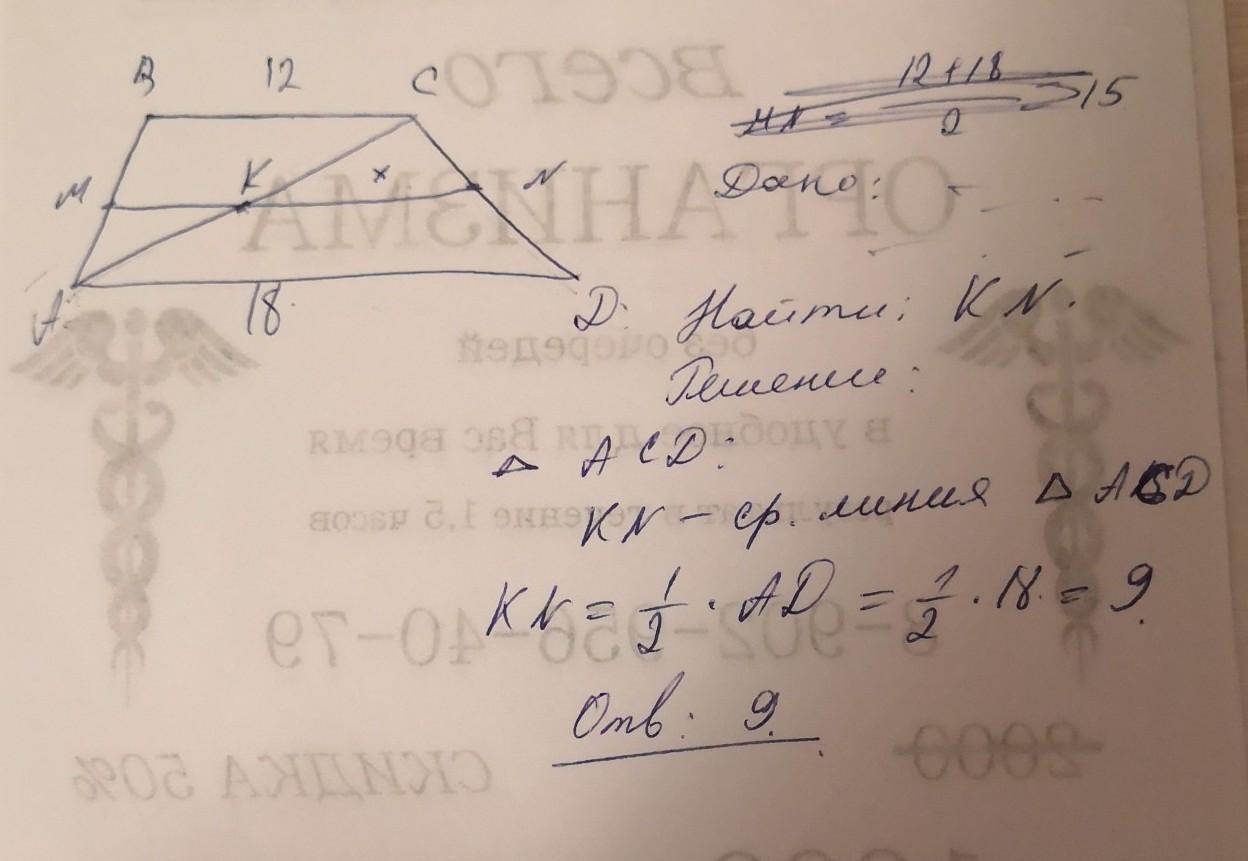 B 12 C
M K x N
A 18 D
12+18
MN = 2 15
Дано:
Найти: KN.
Решение:
△ ACD:
KN - ср. линия △ ACD
KN = 1/2 · AD = 1/2 · 18 = 9
Отв: 9.
Всего
ОРГАНИЗМА
без очередей
в удобное для Вас время
результат в течение 1,5 часов
8-902-956-40-79
2000
СКИДКА 50%